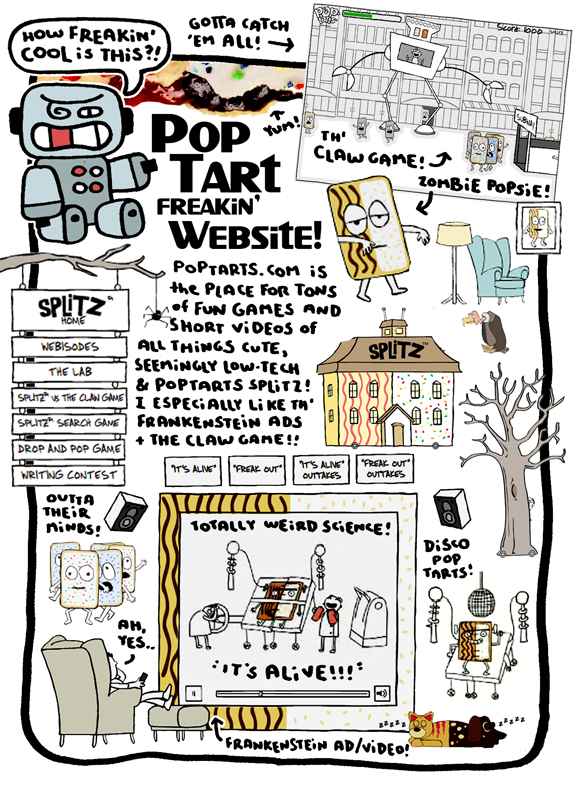 HOW FREAKIN'
COOL IS THIS?!
GOTTA CATCH
'EM ALL! →
SCORE: 1000
SUBWAY
YUM!
TH'
CLAW GAME!
ZOMBIE POPSIE!
POP
TART
FREAKIN'
WEBSITE!
POPTARTS.COM IS
THE PLACE FOR TONS
OF FUN GAMES AND
SHORT VIDEOS OF
ALL THINGS CUTE,
SEEMINGLY LOW-TECH
& POPTARTS SPLITZ!
I ESPECIALLY LIKE TH'
FRANKENSTEIN ADS
+ THE CLAW GAME!!
SPLITZ™
HOME
WEBISODES
THE LAB
SPLITZ™ VS THE CLAN GAME
SPLITZ™ SEARCH GAME
DROP AND POP GAME
WRITING CONTEST
SPLITZ™
"IT'S ALIVE"
"FREAK OUT"
"IT'S ALIVE"
OUTTAKES
"FREAK OUT"
OUTTAKES
OUTTA
THEIR
MINDS!
TOTALLY WEIRD SCIENCE!
DISCO
POP
TARTS!
AH,
YES..
"IT'S ALIVE!!!"
FRANKENSTEIN AD/VIDEO!
zzzzz
zzzzz